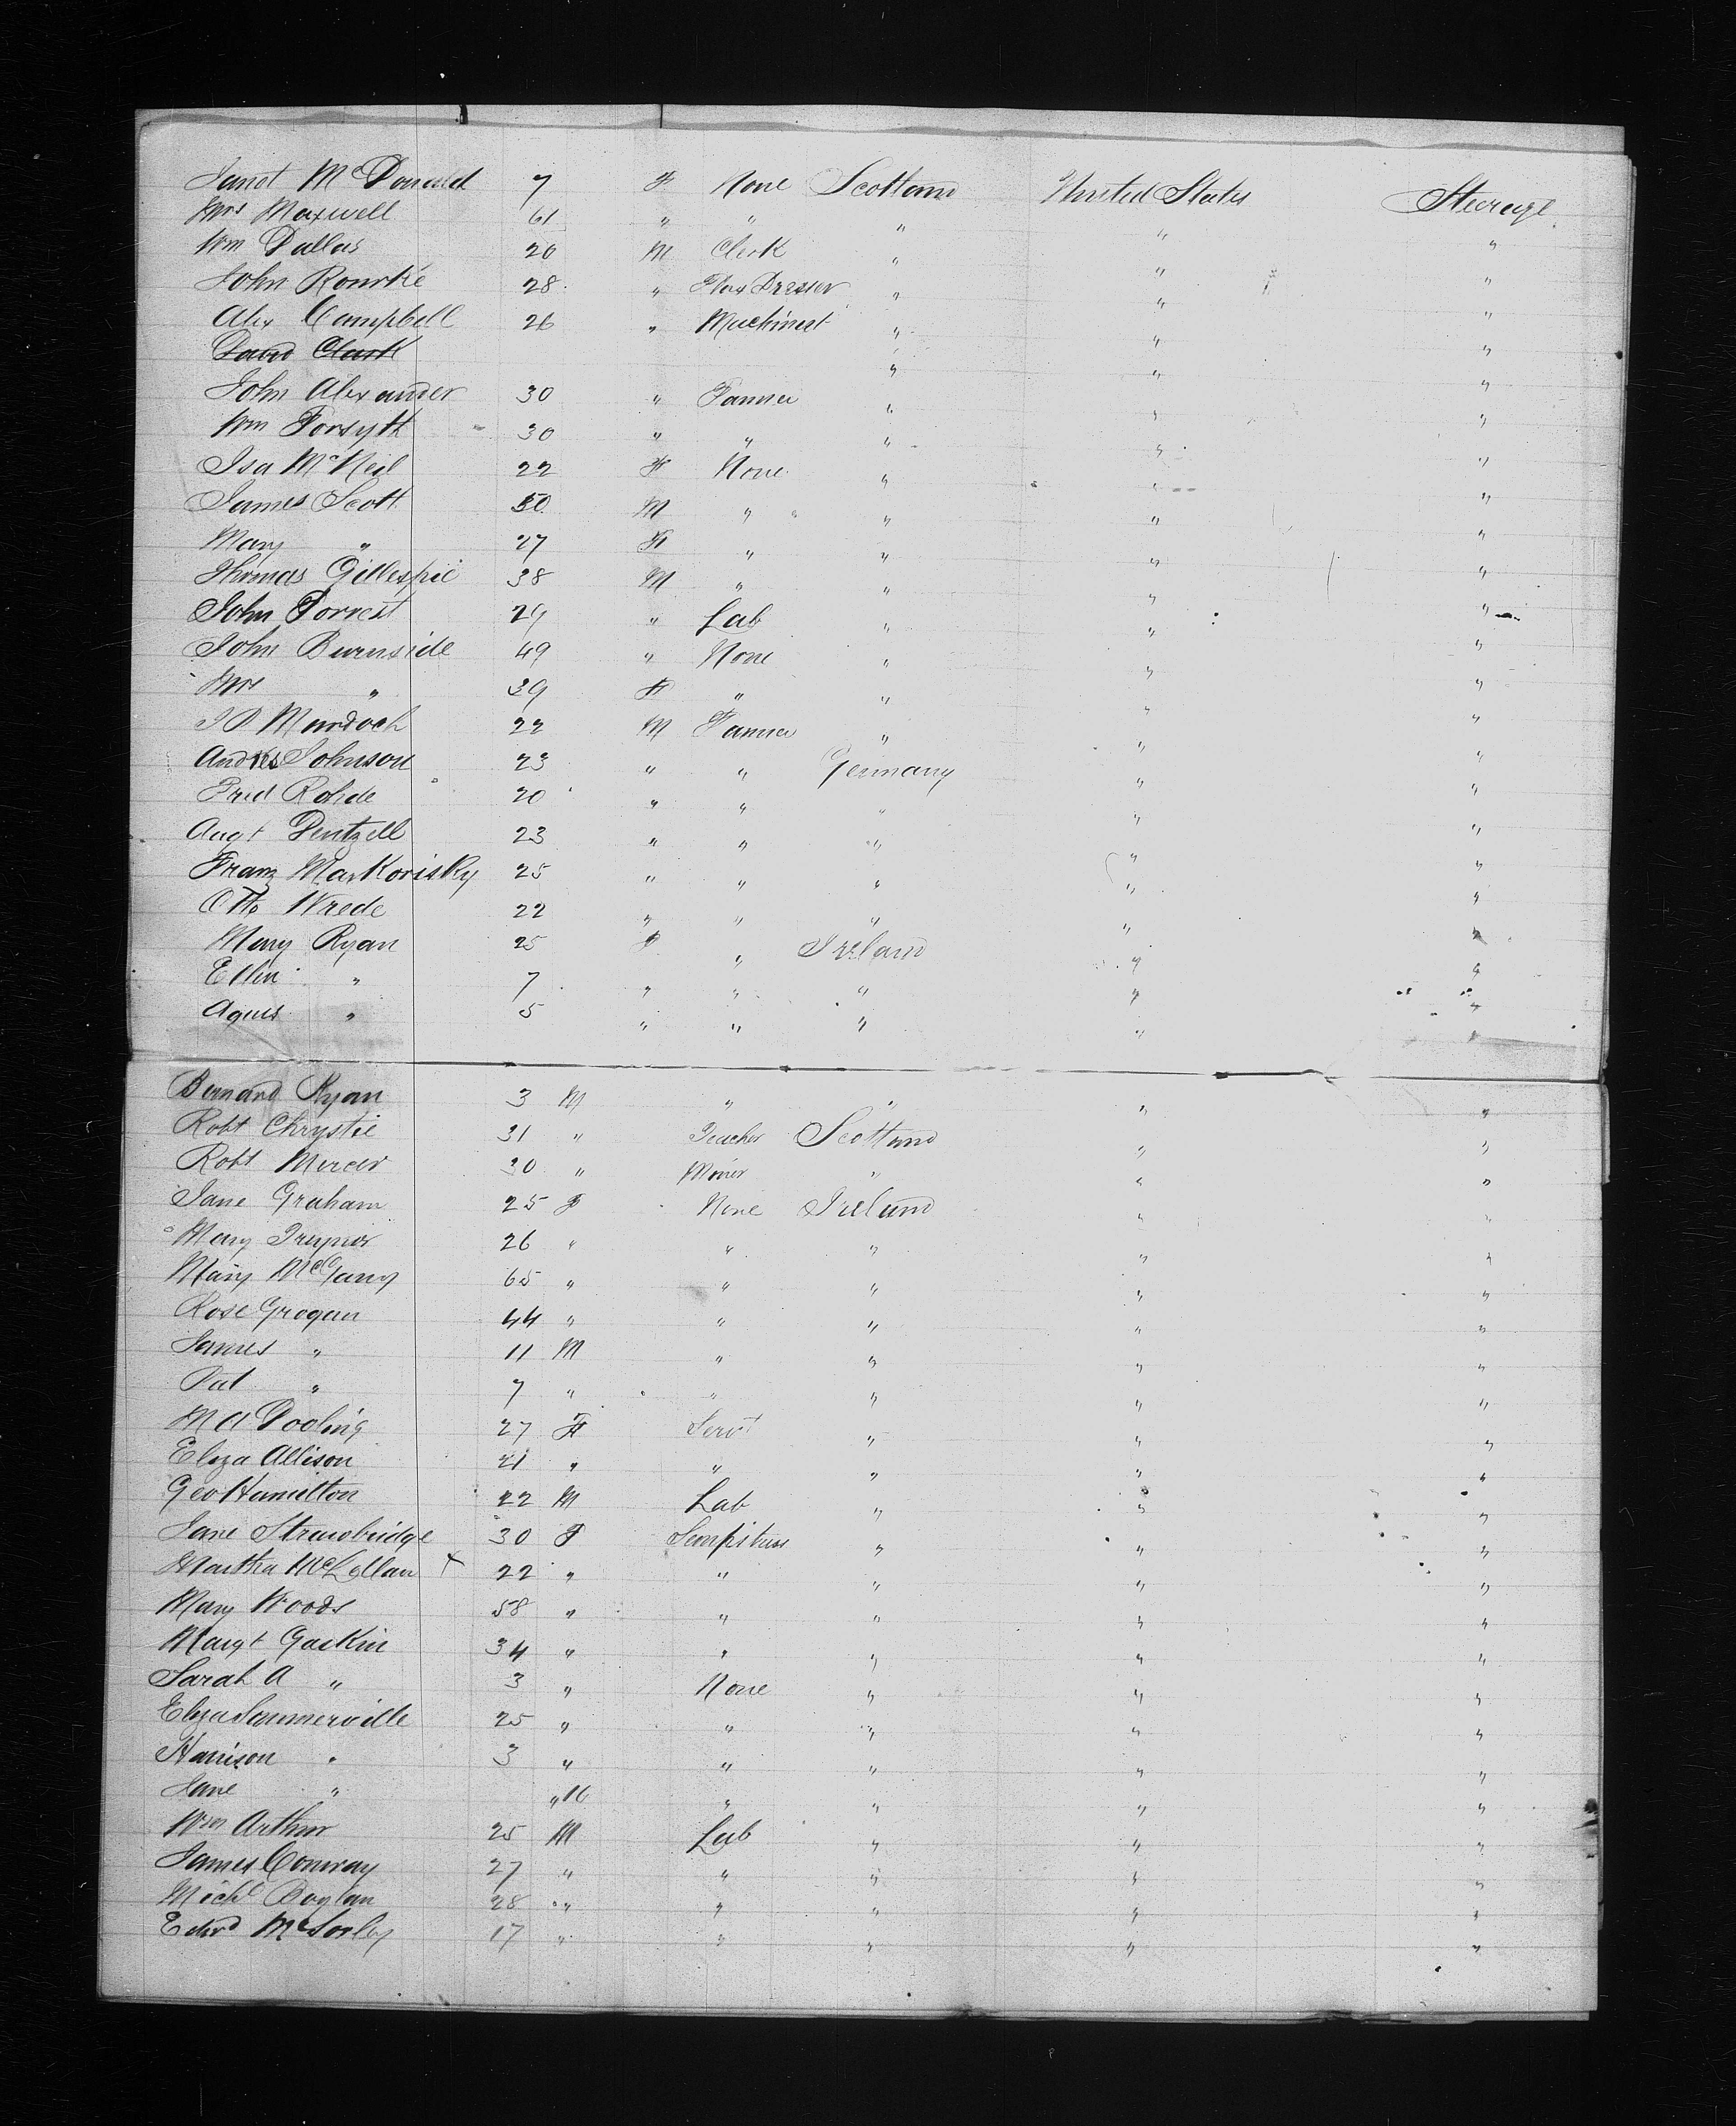 Janet McDonald 7 F None Scotland United States Steerage
Mrs Maxwell 61 " " " " "
Wm Dallas 20 M Clerk " " "
John Rourke 28 " Flax Dresser " " "
Alex Campbell 26 " Machinest " " "
David Clark " " "
John Alexander 30 " Farmer " " "
Wm Forsyth 30 " " " " "
Isa McNeil 22 F None " " "
James Scott 50 M " " " "
Mary " 27 F " " " "
Thomas Gillespie 38 M " " " "
John Forrest 29 " Lab " " "
John Burnside 49 " None " " "
Mrs " 39 F " " " "
Murdoch 22 M Farmer " " "
Johnson 23 " " Germany " "
Fred Rohde 20 " " " " "
Augt Pentzell 23 " " " " "
Franz Markorisky 25 " " " " "
Otto Wrede 22 " " " " "
Mary Ryan 25 F " Ireland " "
Ellen " 7 " " " " "
Agnes " 5 " " " " "
Bernard Ryan 3 M " " " "
Robt Chrystie 31 " Teacher Scotland " "
Robt Mercer 30 " Miner " " "
Jane Graham 25 F None Ireland " "
Mary 26 " " " " "
Mary 65 " " " " "
Rose Grogan 44 " " " " "
James " 11 M " " " "
Pat " 7 " " " " "
M A Dooling 27 F Servt " " "
Eliza Allison 21 " " " " "
Geo Hamilton 22 M Lab " " "
Jane Strawbridge 30 F " " "
Martha McLellan x 22 " " " " "
Mary Woods 58 " " " " "
Margt Gaskin 34 " " " " "
Sarah A " 3 " None " " "
Eliza Sommerville 25 " " " " "
Harrison " 3 " " " " "
Jane " " " " " "
Wm Arthur 25 M Lab " " "
James Conway 27 " " " " "
Michl Boylan 28 " " " " "
Edwd McSorley 17 " " " " "